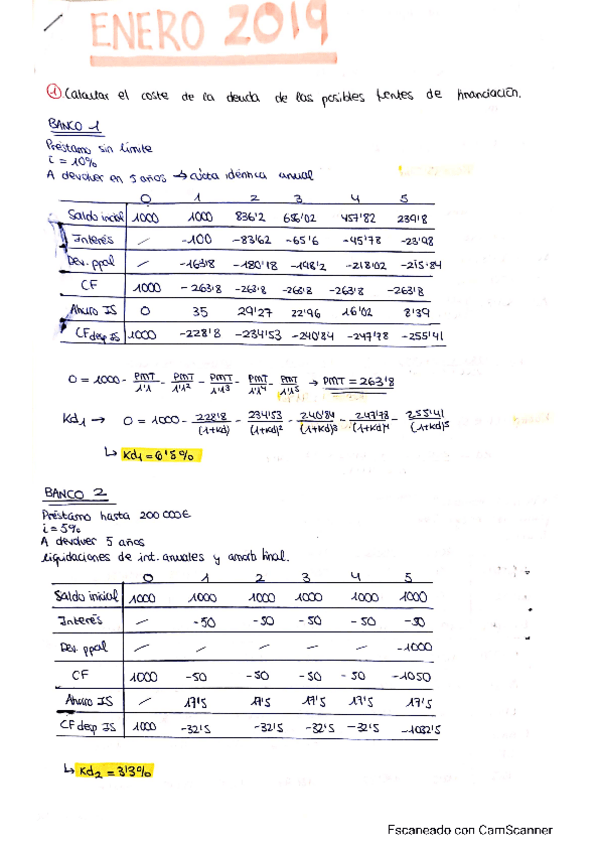 ENERO 2019
① Calcular el coste de la deuda de las posibles fuentes de financiación.
BANCO 1
Préstamo sin límite
i = 10%
A devolver en 5 años → cuota idéntica anual
0 1 2 3 4 5
Saldo inicial 1000 1000 836'2 656'02 457'82 239'8
Interés / -100 -83'62 -65'6 -45'78 -23'98
Dev. ppal / -163'8 -180'18 -198'2 -218'02 -215'84
CF 1000 -263'8 -263'8 -263'8 -263'8 -263'8
Ahorro IS 0 35 29'27 22'96 16'02 8'39
CF desp IS 1000 -228'8 -234'53 -240'84 -247'78 -255'41
0 = 1000 - PMT/1'1 - PMT/1'1² - PMT/1'1³ - PMT/1'1⁴ - PMT/1'1⁵ → PMT = 263'8
Kd₁ → 0 = 1000 - 228'8/(1+Kd) - 234'53/(1+Kd)² - 240'84/(1+Kd)³ - 247'78/(1+Kd)⁴ - 255'41/(1+Kd)⁵
↳ Kd₁ = 6'5%
BANCO 2
Préstamo hasta 200 000€
i = 5%
A devolver 5 años
liquidaciones de int. anuales y amort. final.
0 1 2 3 4 5
Saldo inicial 1000 1000 1000 1000 1000 1000
Interés / -50 -50 -50 -50 -50
Dev. ppal / / / / / -1000
CF 1000 -50 -50 -50 -50 -1050
Ahorro IS / 17'5 17'5 17'5 17'5 17'5
CF desp IS 1000 -32'5 -32'5 -32'5 -32'5 -1032'5
↳ Kd₂ = 3'3%
Escaneado con CamScanner